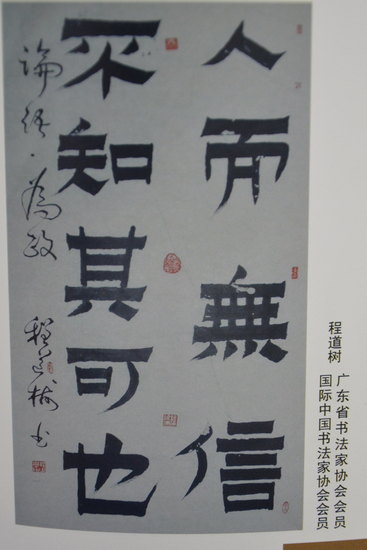 人而無信
不知其可也
論語·為政 程道树书
程道树
广东省书法家协会会员
国际中国书法家协会会员